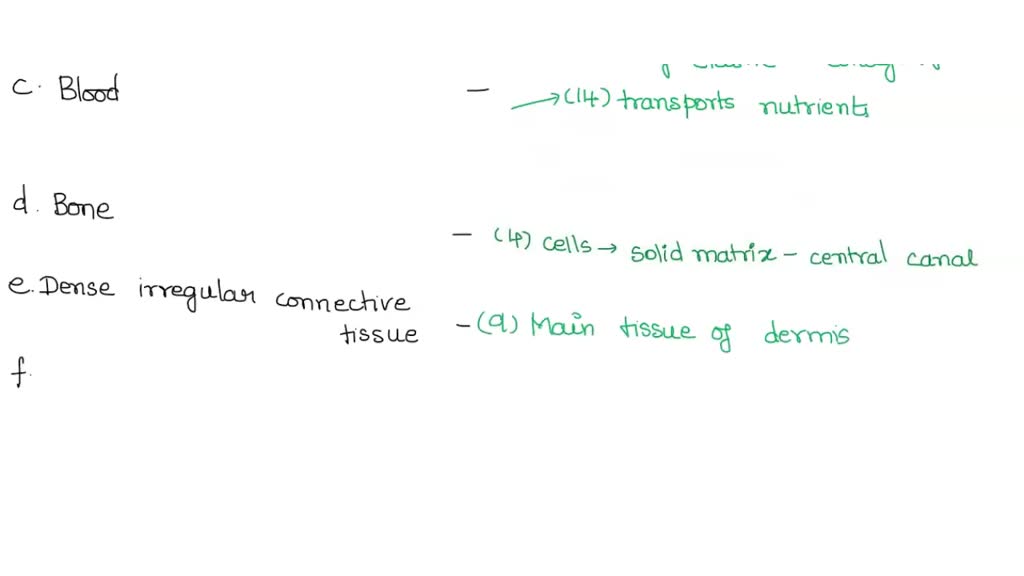 c. Blood — →(14) transports nutrients
d. Bone
— (4) cells → solid matrix - central canal
e. Dense irregular connective
tissue - (9) Main tissue of dermis
f.